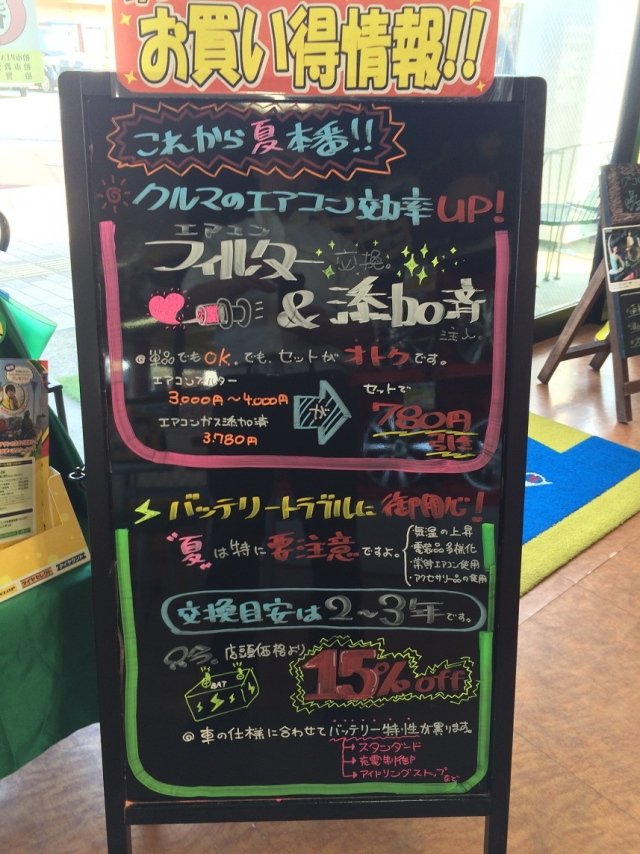 お買い得情報!!
これから夏本番!!
クルマのエアコン効率UP!
エアコン
フィルター交換。
&添加済
注入。
@単品でもOK.でも、セットがオトクです。
エアコンフィルター
3,000円〜4,000円
エアコンガス添加済
3.780円
が
セットで
780円
引き
バッテリートラブルに御用心!
"夏"は特に要注意ですよ。
・気温の上昇
・電装品多様化
・常時エアコン使用
・アクセサリー品の使用
交換目安は2〜3年です。
只今。店頭価格より
15%off
BAT
@車の仕様に合わせてバッテリー特性が異ります。
→スタンダード
→充電制御
→アイドリングストップなど